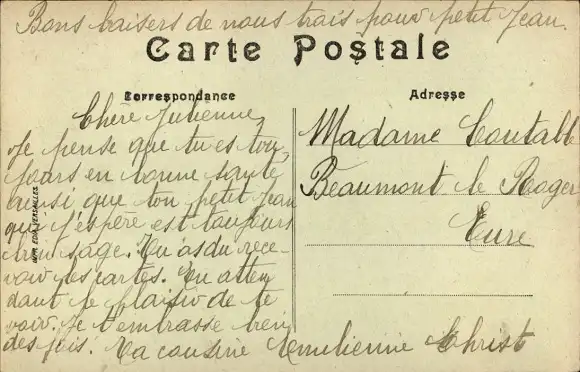 Bons baisers de nous trois pour petit Jean.
Carte Postale
Correspondance
Chère Julienne,
Je pense que tu es tou
jours en bonne santé
ainsi que ton petit Jean
que j'espère est toujours
bien sage. Tu as du rece-
voir tes cartes. En atten
dant le plaisir de te
voir. Je t'embrasse bien
des fois. Ta cousine Emilienne Christ
Adresse
Madame Coutable
Beaumont le Roger
Eure
IMP. EDIA VERSAILLES